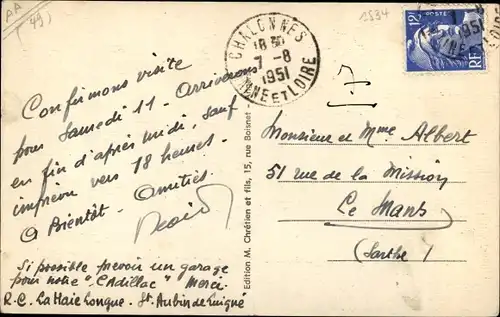 AA
(49)
1534
CHALONNES
18 30
7-8
1951
MAINE ET LOIRE
12F
POSTE
RF
1951
NE ET LOIRE
Confirmons visite
pour Samedi 11 - Arriverons
en fin d'après midi, sauf
imprévu vers 18 heures.
A Bientôt - Amitiés.
Si possible prévoir un garage
pour notre "Cadillac" Merci.
R.C. La Haie Longue - St Aubin de Luigné
Edition M. Chrétien et fils, 15, rue Boisnet
Monsieur et Mme Albert
51 rue de la Mission
Le Mans
(Sarthe)